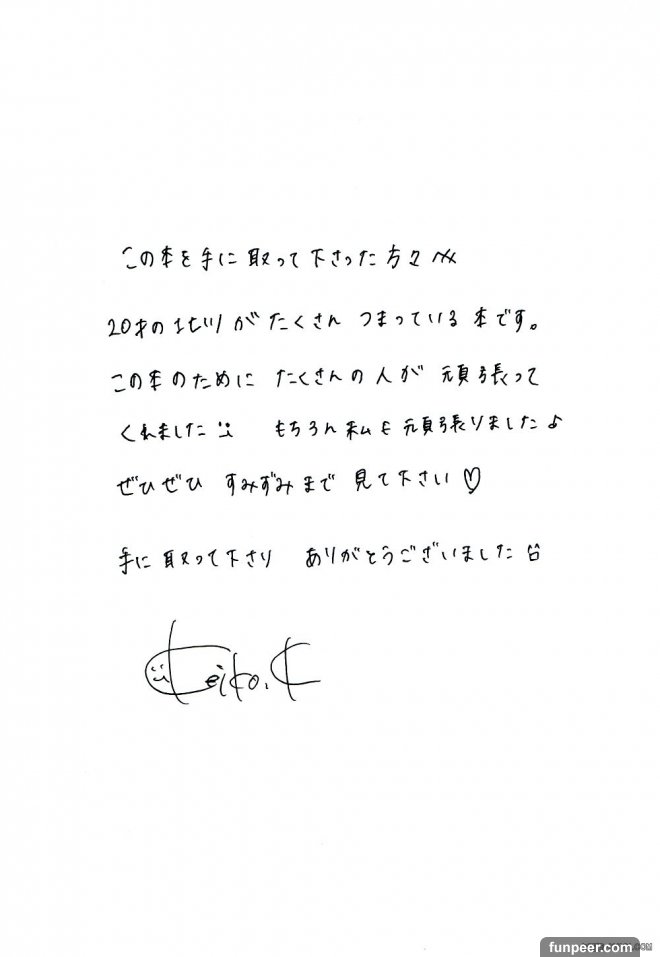 この本を手に取って下さった方々
20才の北川がたくさん つまっている 本です。
この本のために たくさんの人が 頑張って
くれました もちろん 私も 頑張りました♪
ぜひぜひ すみずみまで 見て下さい♡
手に取って下さり ありがとうございました
Keiko.K
funpeer.com